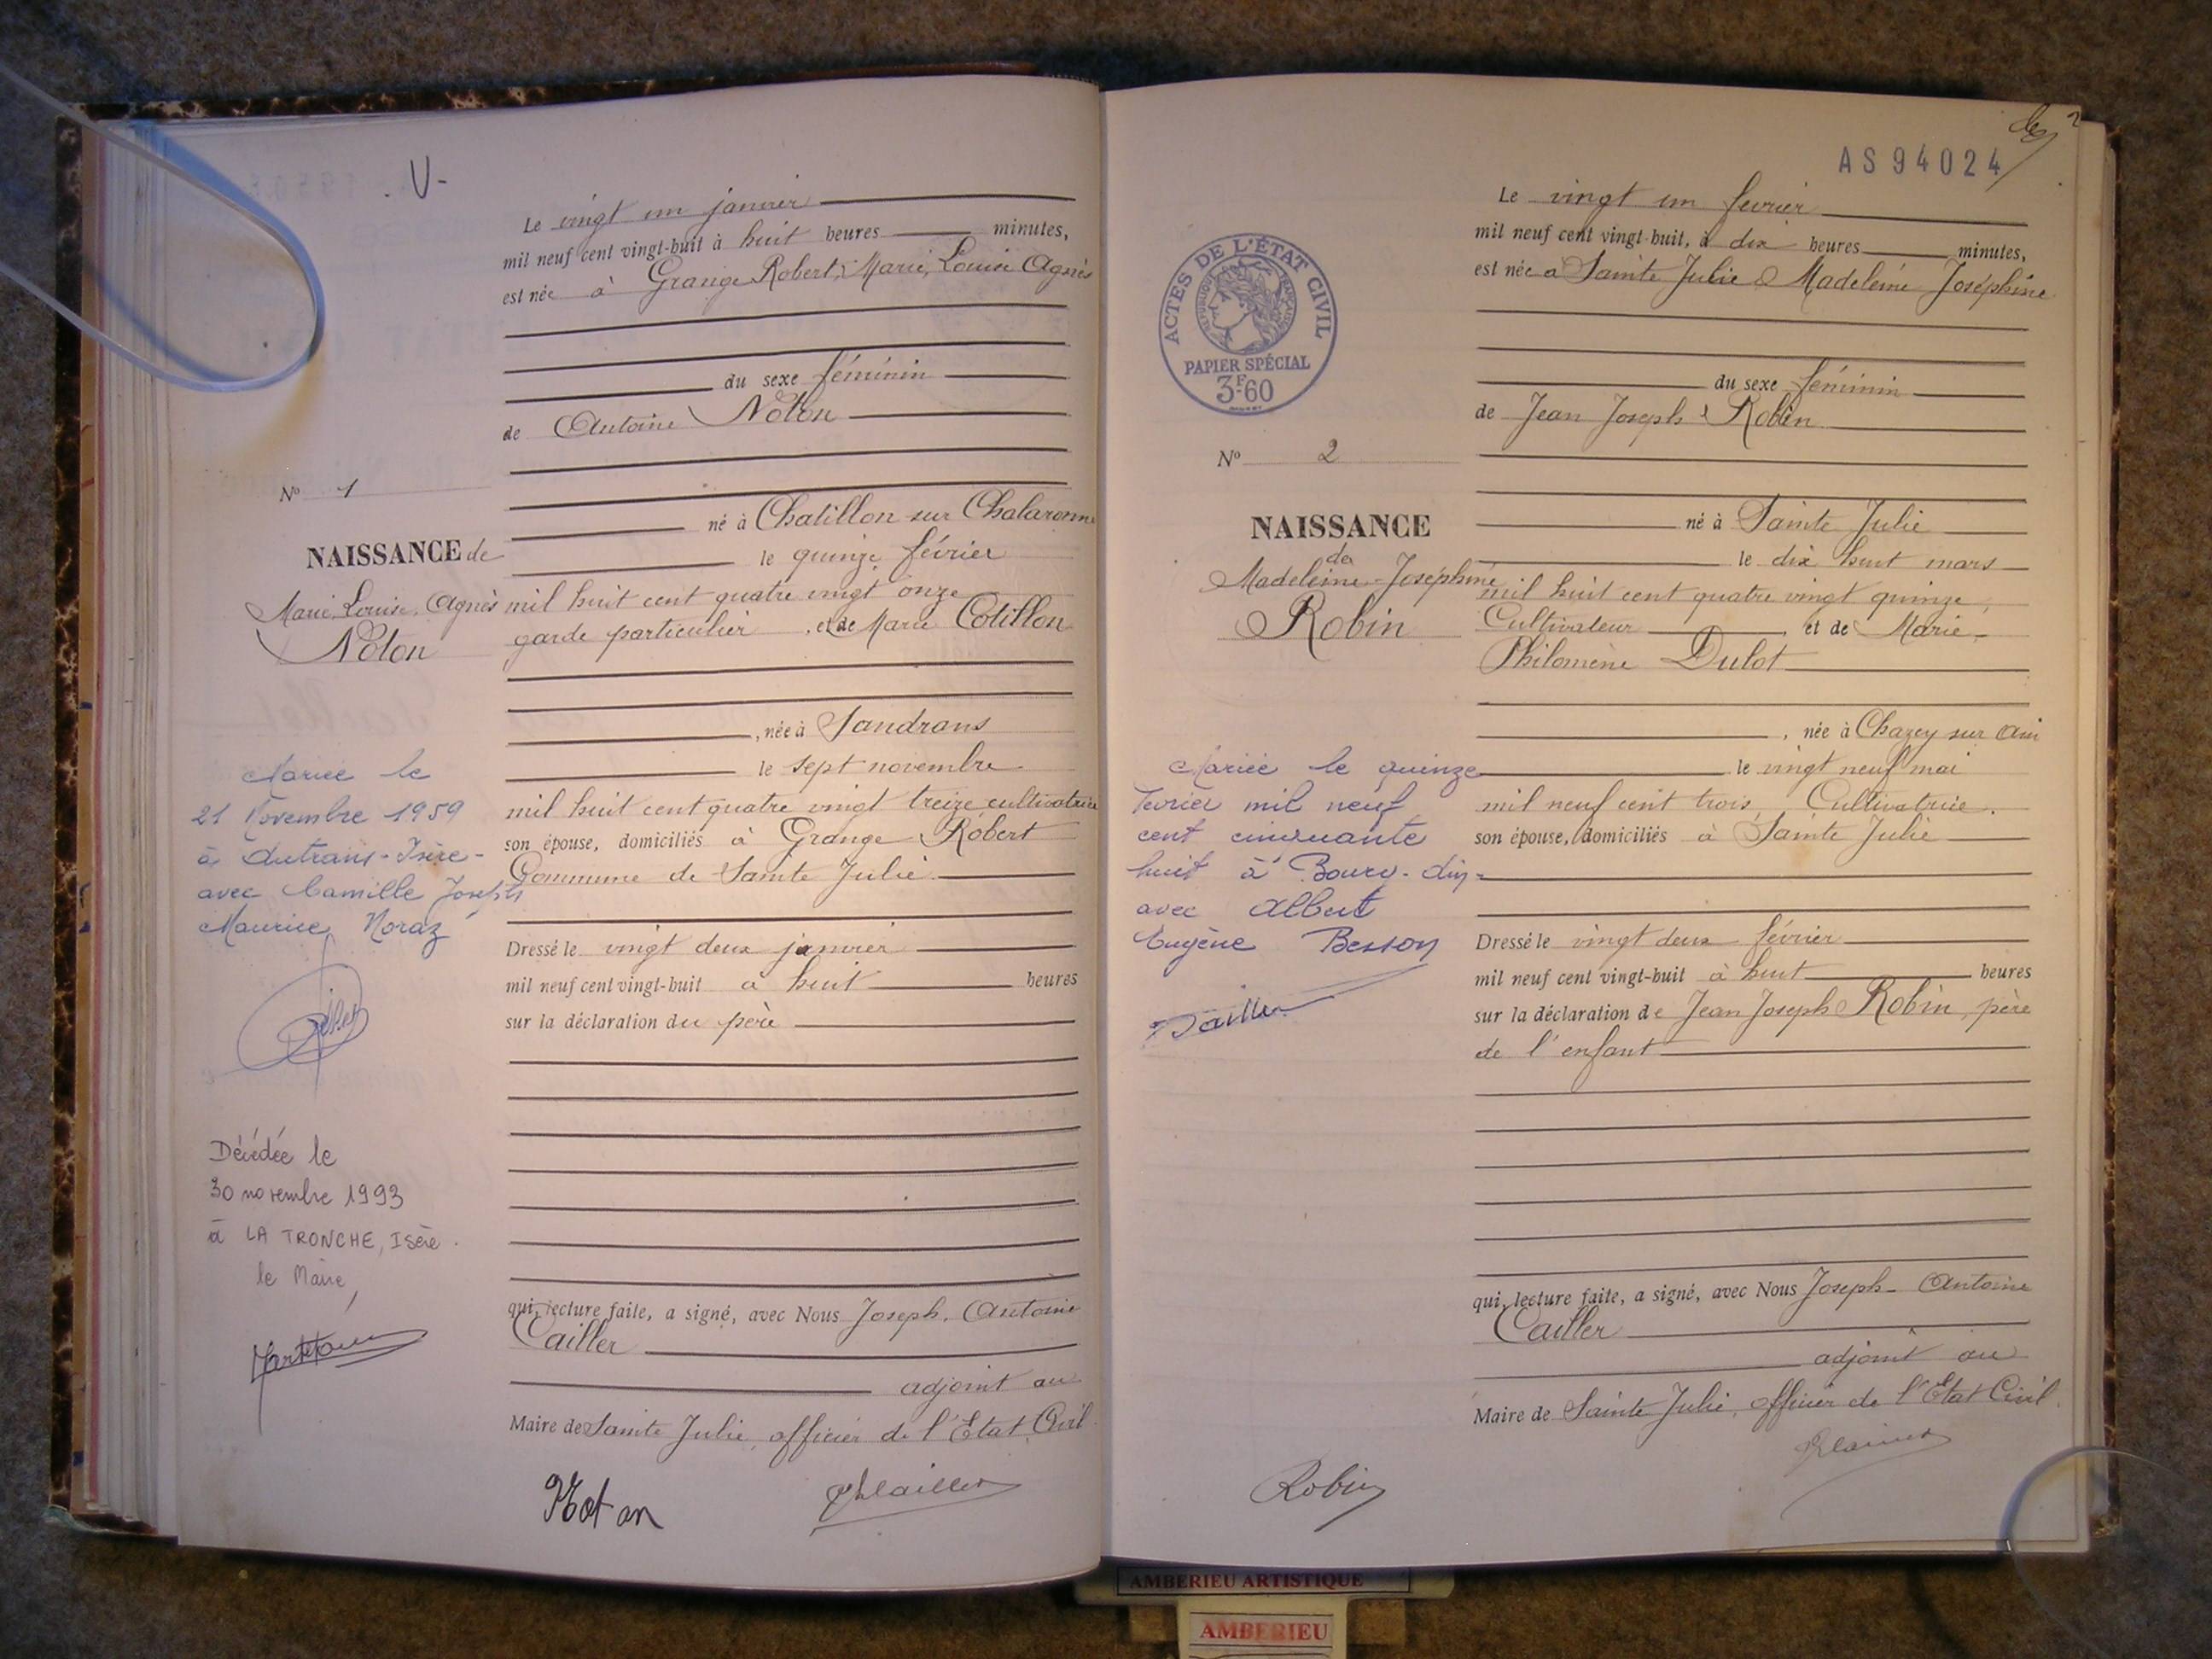 V-
Le vingt un janvier
mil neuf cent vingt-huit à huit heures minutes,
est née à Grange Robert, Marie, Louise Agnès
du sexe féminin
de Antoine Noton
né à Chatillon sur Chalaronne
le quinze février
mil huit cent quatre vingt onze
garde particulier, et de Marie Cotillon
, née à Sandrans
le sept novembre
mil huit cent quatre vingt treize cultivatrice
son épouse, domiciliés à Grange Robert
Commune de Sainte Julie
Dressé le vingt deux janvier
mil neuf cent vingt-huit à huit heures
sur la déclaration du père
qui, lecture faite, a signé, avec Nous Joseph, Antoine
Cailler
adjoint au
Maire de Sainte Julie, officier de l'Etat Civil
Noton
No 1
NAISSANCE de
Marie, Louise, Agnès
Noton
Mariée le
21 Novembre 1959
à Autrans-Isère-
avec Camille Joseph
Maurice Noraz
Décédée le
30 novembre 1993
à LA TRONCHE, Isère.
le Maire,
2
AS94024
ACTES DE L'ÉTAT CIVIL
RÉPUBLIQUE FRANÇAISE
PAPIER SPÉCIAL
3F60
No 2
NAISSANCE
de
Madeleine-Joséphine
Robin
Mariée le quinze
février mil neuf
cent cinquante
huit à Bourg-
avec Albert
Eugène Besson
Cailler
Le vingt un février
mil neuf cent vingt-huit, à dix heures minutes,
est née à Sainte Julie Madeleine Joséphine
du sexe féminin
de Jean Joseph Robin
né à Sainte Julie
le dix huit mars
mil huit cent quatre vingt quinze,
Cultivateur, et de Marie-
Philomène Dulot
, née à Chazey sur Ain
le vingt neuf mai
mil neuf cent trois, Cultivatrice.
son épouse, domiciliés à Sainte Julie
Dressé le vingt deux février
mil neuf cent vingt-huit à huit heures
sur la déclaration de Jean Joseph Robin, père
de l'enfant
qui, lecture faite, a signé, avec Nous Joseph-Antoine
Cailler
adjoint au
Maire de Sainte Julie, officier de l'Etat Civil.
Robin
AMBERIEU ARTISTIQUE
AMBERIEU